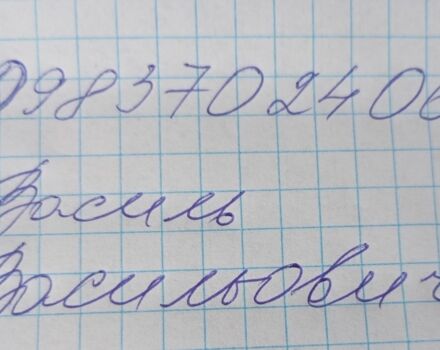 0983702406
Василь
Васильович